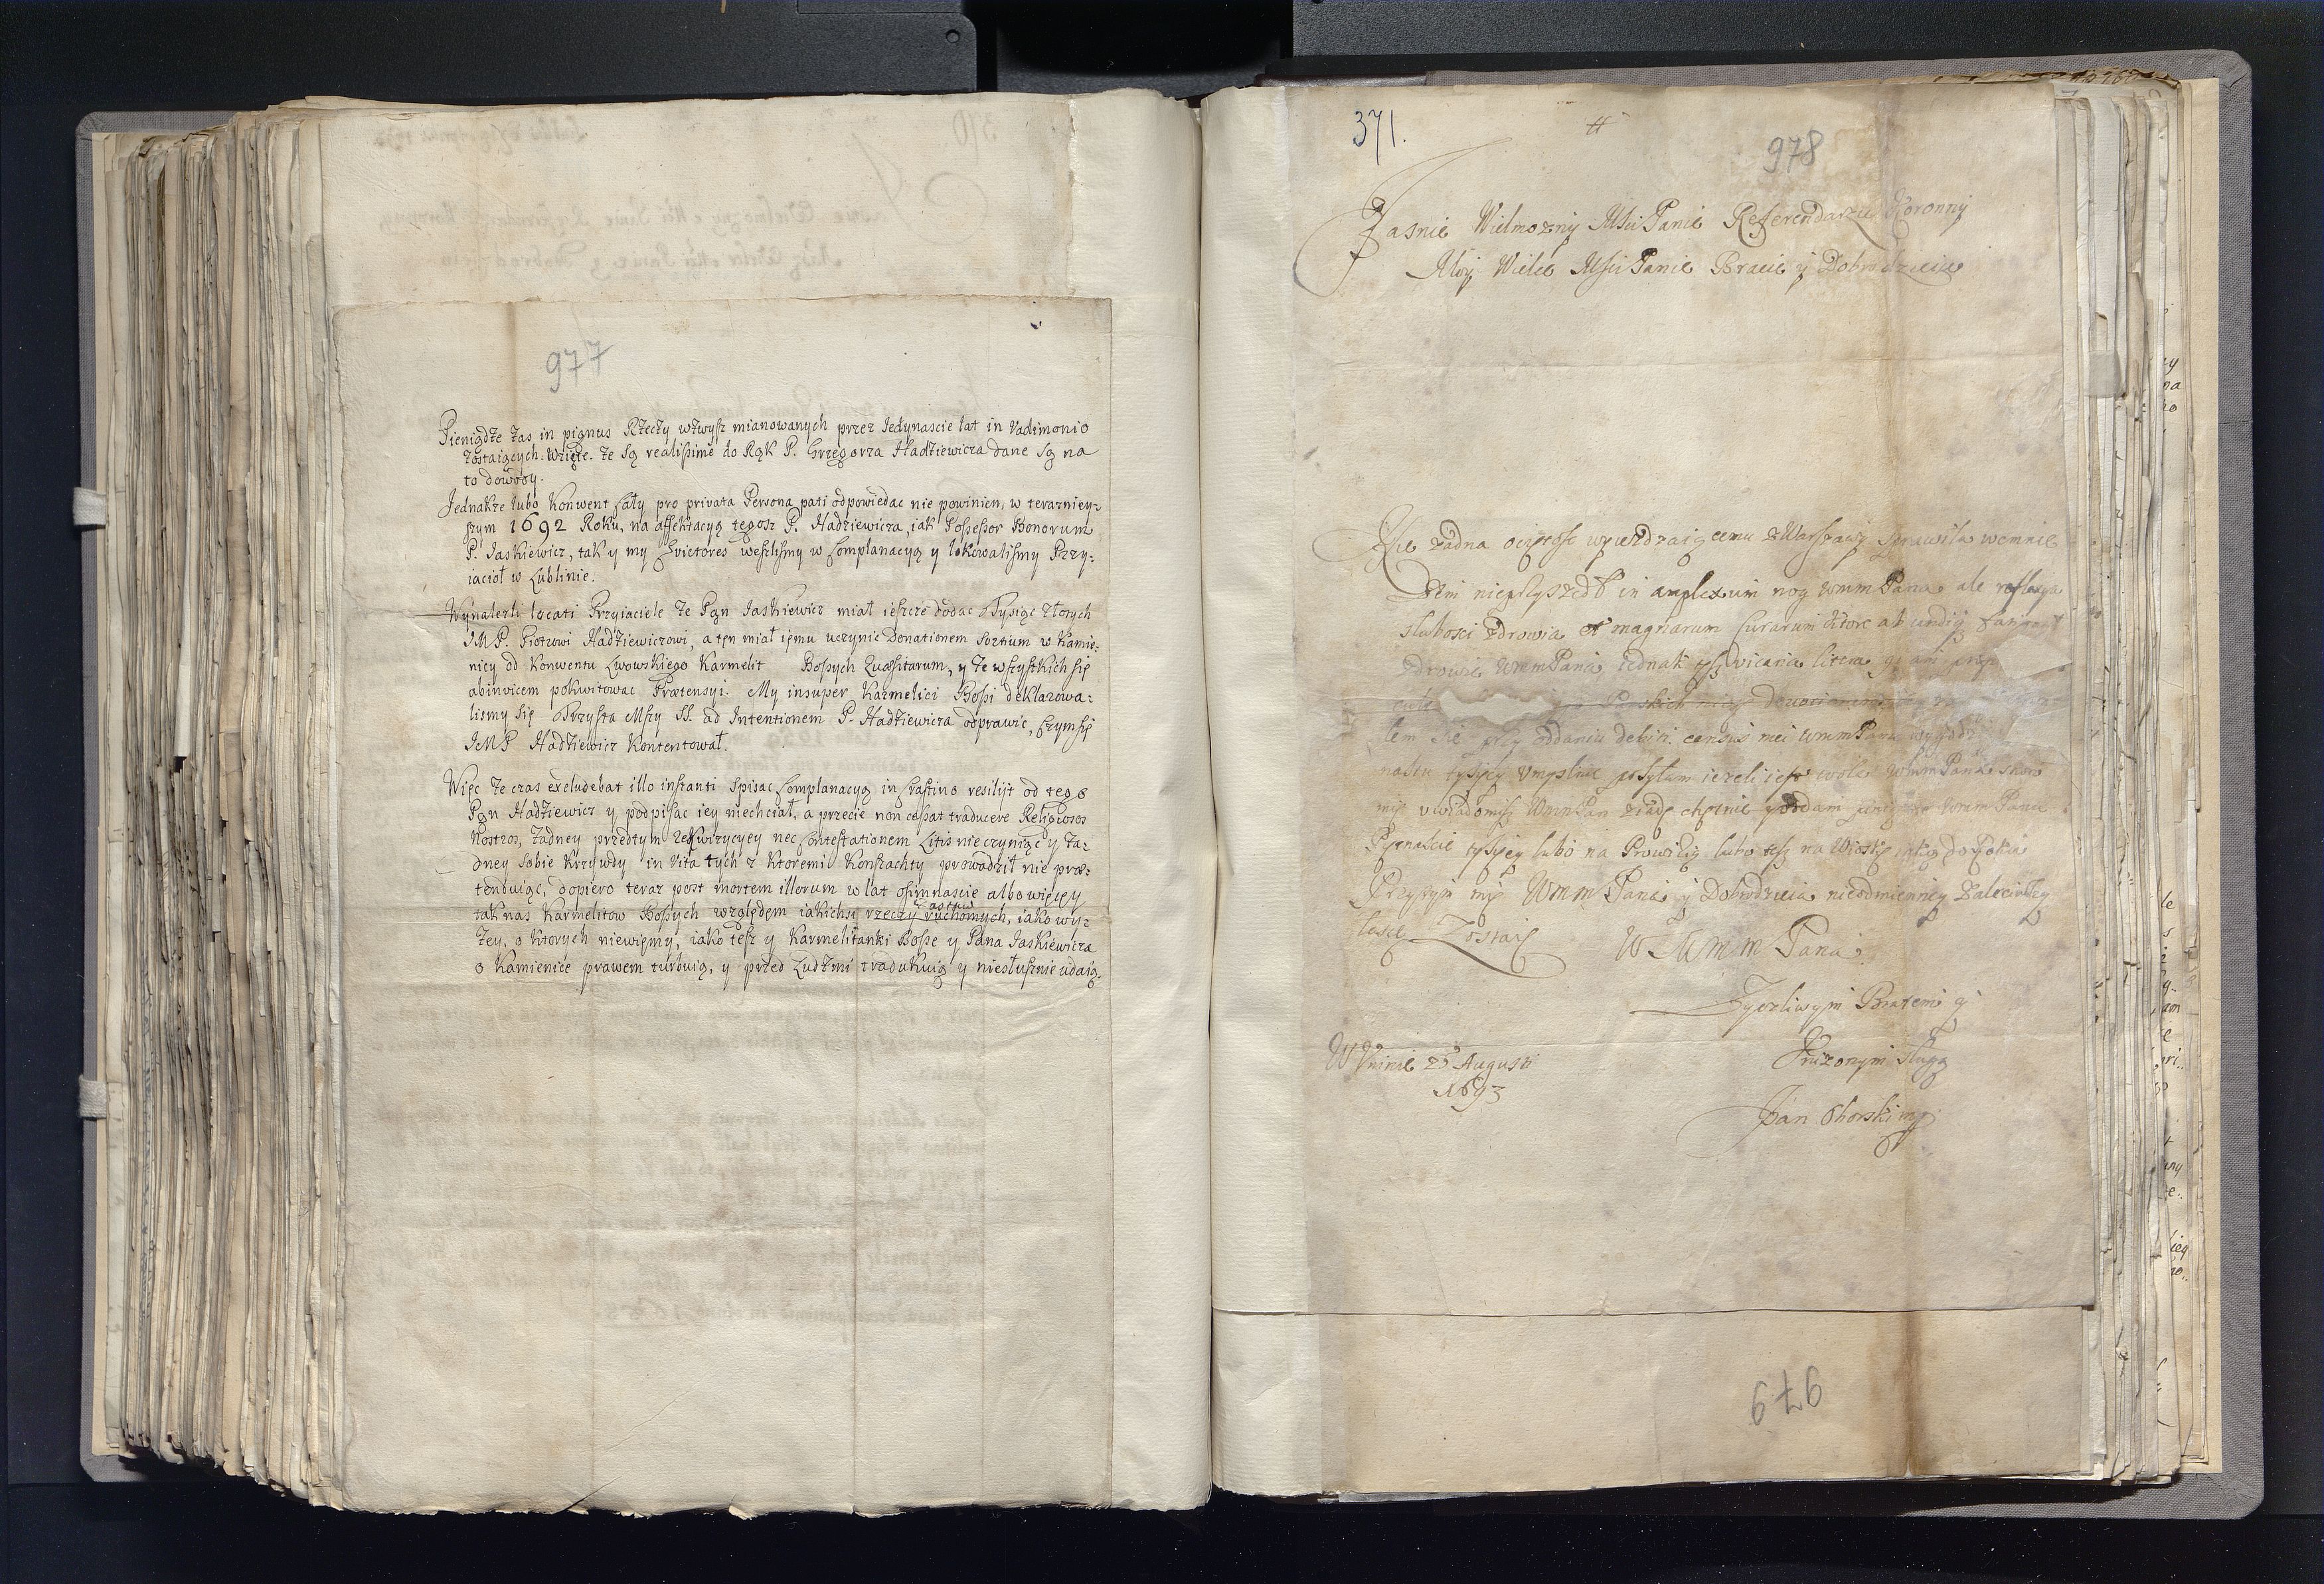 977
Pieniądze zas in pignus Rzeczy wzwysz mianowanych przez Iedynascie lat in Vadimonio
zostaiących. wzięte. ze są realissime do Rąk P. Grzegorza Hadziewicza dane są na
to dowody.
Jednakze lubo Konwent cały pro privata Persona pati odpowiedac nie powinien, w terazniey-
szym 1692 Roku, na affektacyą tegosz P. Hadziewicza, iak Possessor Bonorum
P. Iaskiewicz, tak y my Evictores weszlismy w Complanacyą y lokowalismy Przy-
iacioł w Lublinie.
Wynalezli locati Przyiaciele ze Pan Iaskiewicz miał ieszcze dodac Tysiąc złotych
IM P. Piotrowi Hadziewiczowi, a ten miał iemu uczynic Donationem Sortium w Kamie-
nicy od Konwentu Lwowskiego Karmelit Bossych Quæsitarum, y ze wszystkich się
abinvicem pokwitowac Prætensyi. My insuper Karmelici Bossi deklarowa-
lismy się Trzysta Mszy SS. ad Intentionem P. Hadziewicza odprawic, czym się
IMP Hadziewicz Kontentował.
Więc ze czas excludebat illo instanti spisac Complanacyą in crastino resilijt od tego
Pan Hadziewicz y podpisac iey niechciał, a przecie non cessat traducere Religiosos
Nostros, zadney przedtym rekwizycyey nec Contestationem Litis nie czyniąc y za-
dney sobie Krzywdy in Vita tych z Ktoremi Konszachty prowadził nie præ-
tenduiąc, dopiero teraz post mortem illorum w lat osimnascie albo więcey
tak nas Karmelitow Bossych względem iakichsi rzeczy ruchomych, iako wy-
zey, o Ktorych niewiemy, iako tesz y Karmelitanki Bosse y Pana Iaskiewicza
o Kamienice prawem turbuią, y przed Ludzmi tradukuią y niesłusznie udaią.
371.
978
Jasnie Wielmozny Msci Panie Referendarzu Koronny
Moy Wielce Msci Panie Bracie y Dobrodzieiu
Ze zadna ociętosc wyiezdzaiącemu z Warszawy sprawiła wemnie
zem nieprzyszedł in amplexum nog WMM Pana ale reflexya
słabosci zdrowia et magnarum Curarum ktore ab undiq
zdrowie WMMPana, iednak tesz vicaria litera
tem się przy oddaniu debiti census mei WMMPanu
nastu tysięcy umyslnie posyłam iezeli iest wola WMMPana
mię uwiadomisz WMMPan ztąd chętnie poddam WMM Panu
Pyrnascie tysięcy lubo na Prowizią lubo tesz na Wioskę
Przytym mię WMM Pana y Dobrodzieia nieodmienney zaleciwszy
łasce Zostaię
W M M m Pana
Zyczliwym Bratem y
Unizonym sługą
W Uninie 25 Augusti
1693
Jan Oborski mp
979